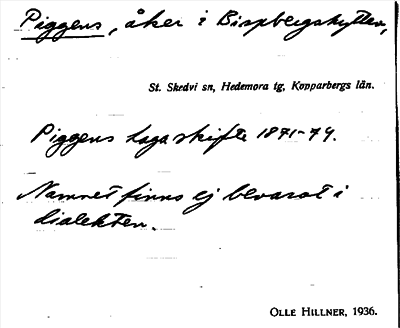 Piggens, åker i Bispbergshyttan,
St. Skedvi sn, Hedemora tg, Kopparbergs län.
Piggens Laga skifte 1871-74.
Namnet finns ej bevarat i
dialekten.
OLLE HILLNER, 1936.